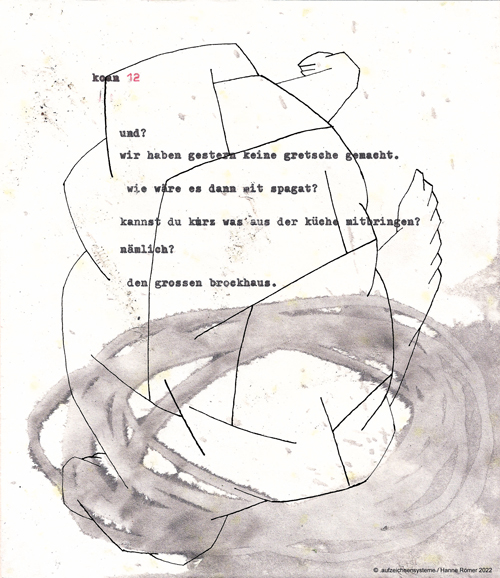 koan 12
und?
wir haben gestern keine gretsche gemacht.
wie wäre es dann mit spagat?
kannst du kurz was aus der küche mitbringen?
nämlich?
den grossen brockhaus.
© .aufzeichensysteme / Hanne Römer 2022